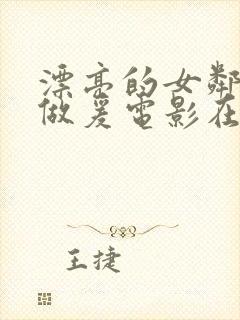 漂亮的女鄰
做爰電影在
王捷